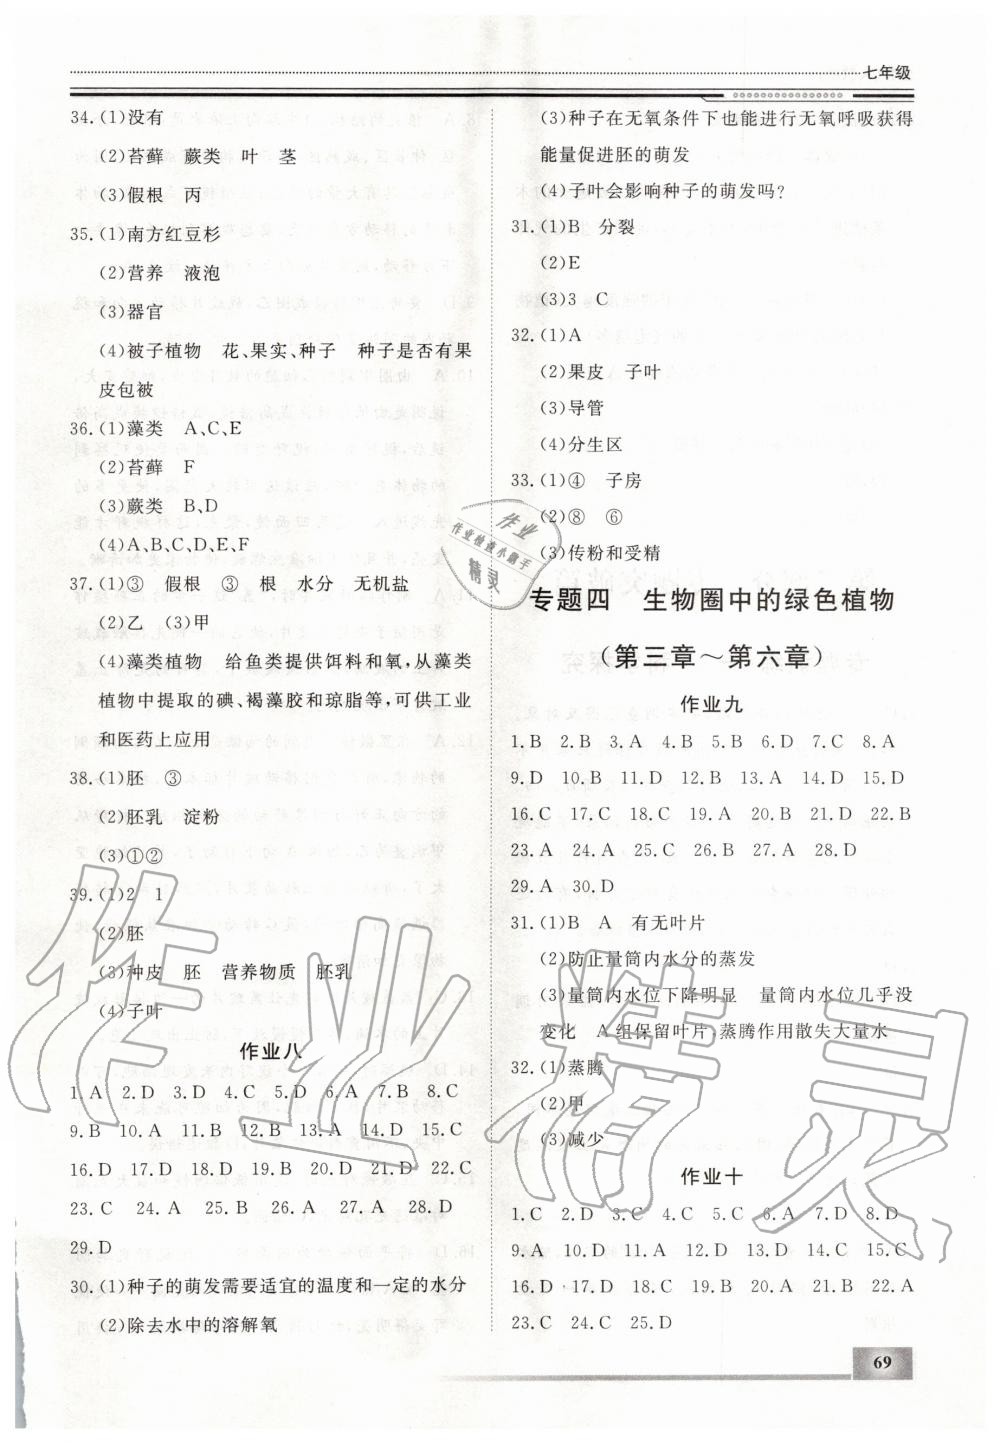 七年级
34.(1)没有
(2)苔藓　蕨类　叶　茎
(3)假根　丙
35.(1)南方红豆杉
(2)营养　液泡
(3)器官
(4)被子植物　花、果实、种子　种子是否有果
皮包被
36.(1)藻类　A、C、E
(2)苔藓　F
(3)蕨类　B、D
(4)A、B、C、D、E、F
37.(1)③　假根　③　根　水分　无机盐
(2)乙　(3)甲
(4)藻类植物　给鱼类提供饵料和氧,从藻类
植物中提取的碘、褐藻胶和琼脂等,可供工业
和医药上应用
38.(1)胚　③
(2)胚乳　淀粉
(3)①②
39.(1)2　1
(2)胚
(3)种皮　胚　营养物质　胚乳
(4)子叶
作业八
1.A　2.D　3.D　4.C　5.D　6.A　7.B　8.C
9.B　10.A　11.B　12.B　13.A　14.D　15.C
16.D　17.D　18.D　19.B　20.D　21.D　22.C
23.C　24.A　25.B　26.A　27.A　28.D
29.D
30.(1)种子的萌发需要适宜的温度和一定的水分
(2)除去水中的溶解氧
(3)种子在无氧条件下也能进行无氧呼吸获得
能量促进胚的萌发
(4)子叶会影响种子的萌发吗?
31.(1)B　分裂
(2)E
(3)3　C
32.(1)A
(2)果皮　子叶
(3)导管
(4)分生区
33.(1)④　子房
(2)⑧　⑥
(3)传粉和受精
专题四　生物圈中的绿色植物
(第三章～第六章)
作业九
1.B　2.B　3.A　4.B　5.B　6.D　7.C　8.A
9.D　10.B　11.D　12.B　13.A　14.D　15.D
16.C　17.C　18.C　19.A　20.B　21.D　22.B
23.A　24.A　25.C　26.B　27.A　28.D
29.A　30.D
31.(1)B　A　有无叶片
(2)防止量筒内水分的蒸发
(3)量筒内水位下降明显　量筒内水位几乎没
变化　A组保留叶片,蒸腾作用散失大量水
32.(1)蒸腾
(2)甲
(3)减少
作业十
1.C　2.D　3.C　4.C　5.C　6.A　7.D　8.D
9.A　10.D　11.A　12.D　13.D　14.C　15.A
16.D　17.D　18.C　19.B　20.A　21.D　22.A
23.C　24.C　25.D
69
作业
作业检查小助手
精灵
作业精灵